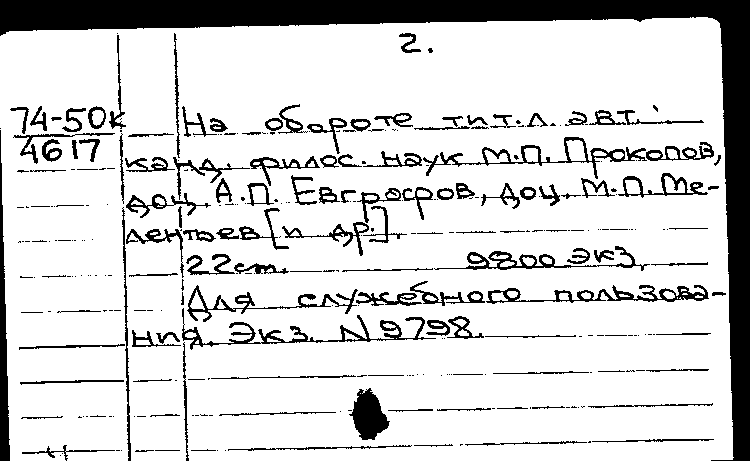 2.
74-50к
4617
На обороте тит.л. авт.:
канд. филос. наук М.П. Прокопов,
доц. А.П. Евграфров, доц. М.П. Ме-
лентьев [и др.].
22 cm. 9800 экз.
Для служебного пользова-
ния. Экз. N 9798.